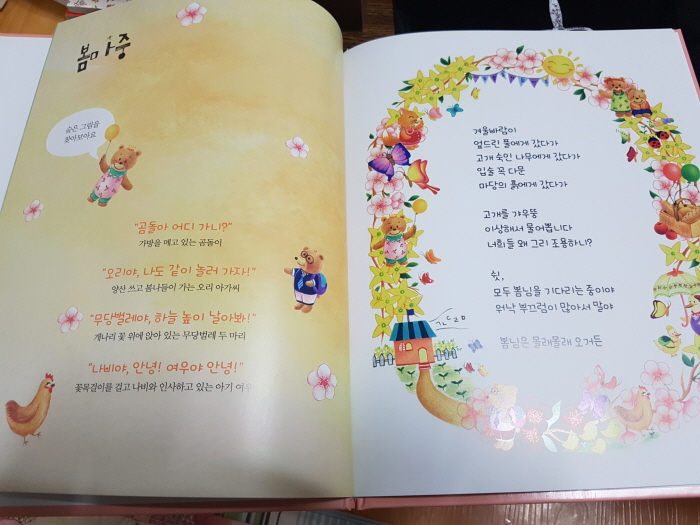 봄마중
숨은 그림을
찾아보아요
"곰돌아 어디 가니?"
가방을 메고 있는 곰돌이
"오리야, 나도 같이 놀러 가자!"
양산 쓰고 봄나들이 가는 오리 아가씨
"무당벌레야, 하늘 높이 날아봐!"
개나리 꽃 위에 앉아 있는 무당벌레 두 마리
"나비야, 안녕! 여우야 안녕!"
꽃목걸이를 걸고 나비와 인사하고 있는 아기 여우
겨울바람이
엎드린 풀에게 갔다가
고개 숙인 나무에게 갔다가
입술 꼭 다문
마당의 흙에게 갔다가
고개를 갸우뚱
이상해서 물어봅니다
너희들 왜 그리 조용하니?
쉿,
모두 봄님을 기다리는 중이야
워낙 부끄럼이 많아서 말야
봄님은 몰래몰래 오거든